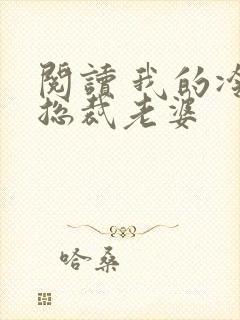 閱讀我的冷
總裁老婆
哈桑